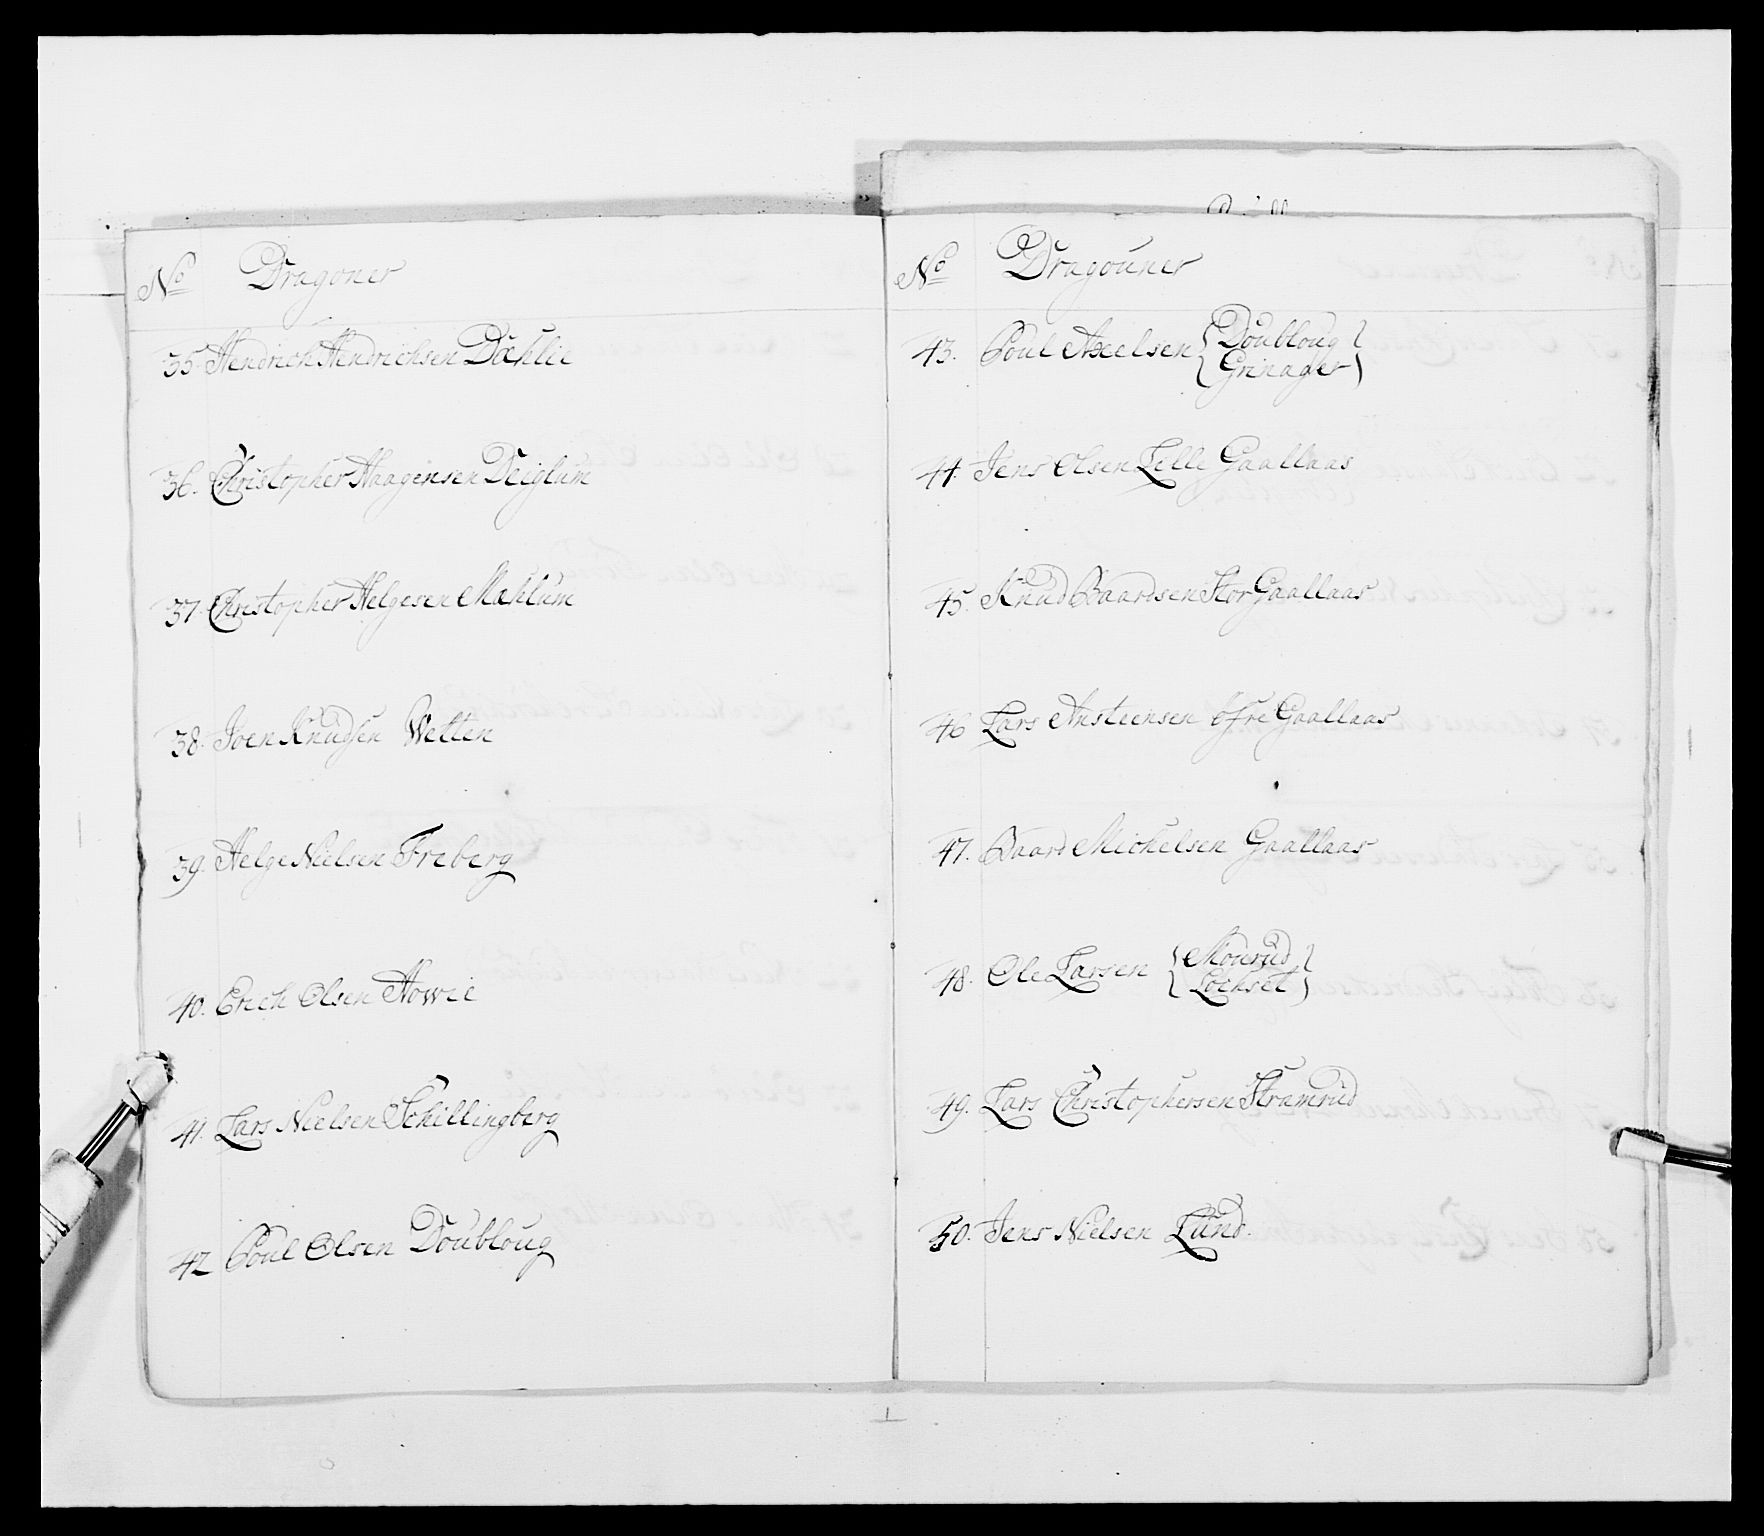 No Dragoner
35. Hendrich Hendrichsen Dæhlie
36. Christopher Haagensen Deiglum
37. Christopher Helgesen Mæhlum
38. Joen Knudsen Wetten
39. Helge Nielsen Freberg
40. Erich Olsen Howie
41. Lars Nielsen Schillingberg
42 Poul Olsen Doubloug
No Dragouner
43. Poul Axelsen { Doubloug }
{ Grinager }
44. Jens Olsen Lille Gaallaas
45. Knud Baardsen Stor Gaallaas
46 Lars Ansteensen Øfre Gaallaas
47. Baard Michelsen Gaallaas
48. Ole Larsen { Mourud }
{ Lochset }
49. Lars Christophersen Stramrud
50. Jens Nielsen Lund.